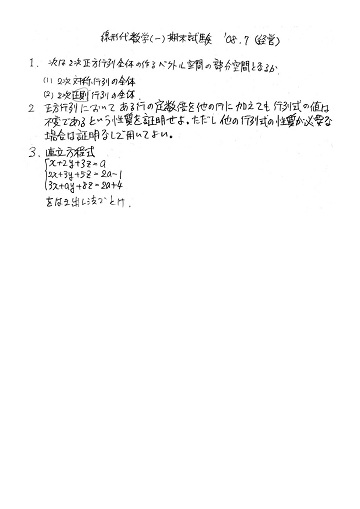 線形代数学(一)期末試験 '08.7 (経営)
1. 次は2次正方行列全体の作るベクトル空間の部分空間となるか
(1) 2次対称行列の全体
(2) 2次正則行列の全体
2 正方行列において ある行の定数倍を他の行に加えても行列式の値は
不変であるという性質を証明せよ。ただし他の行列式の性質が必要な
場合は証明なしで用いてよい。
3. 連立方程式
x+2y+3z=a
2x+3y+5z=2a-1
3x+ay+8z=2a+4
をはき出し法でとけ.